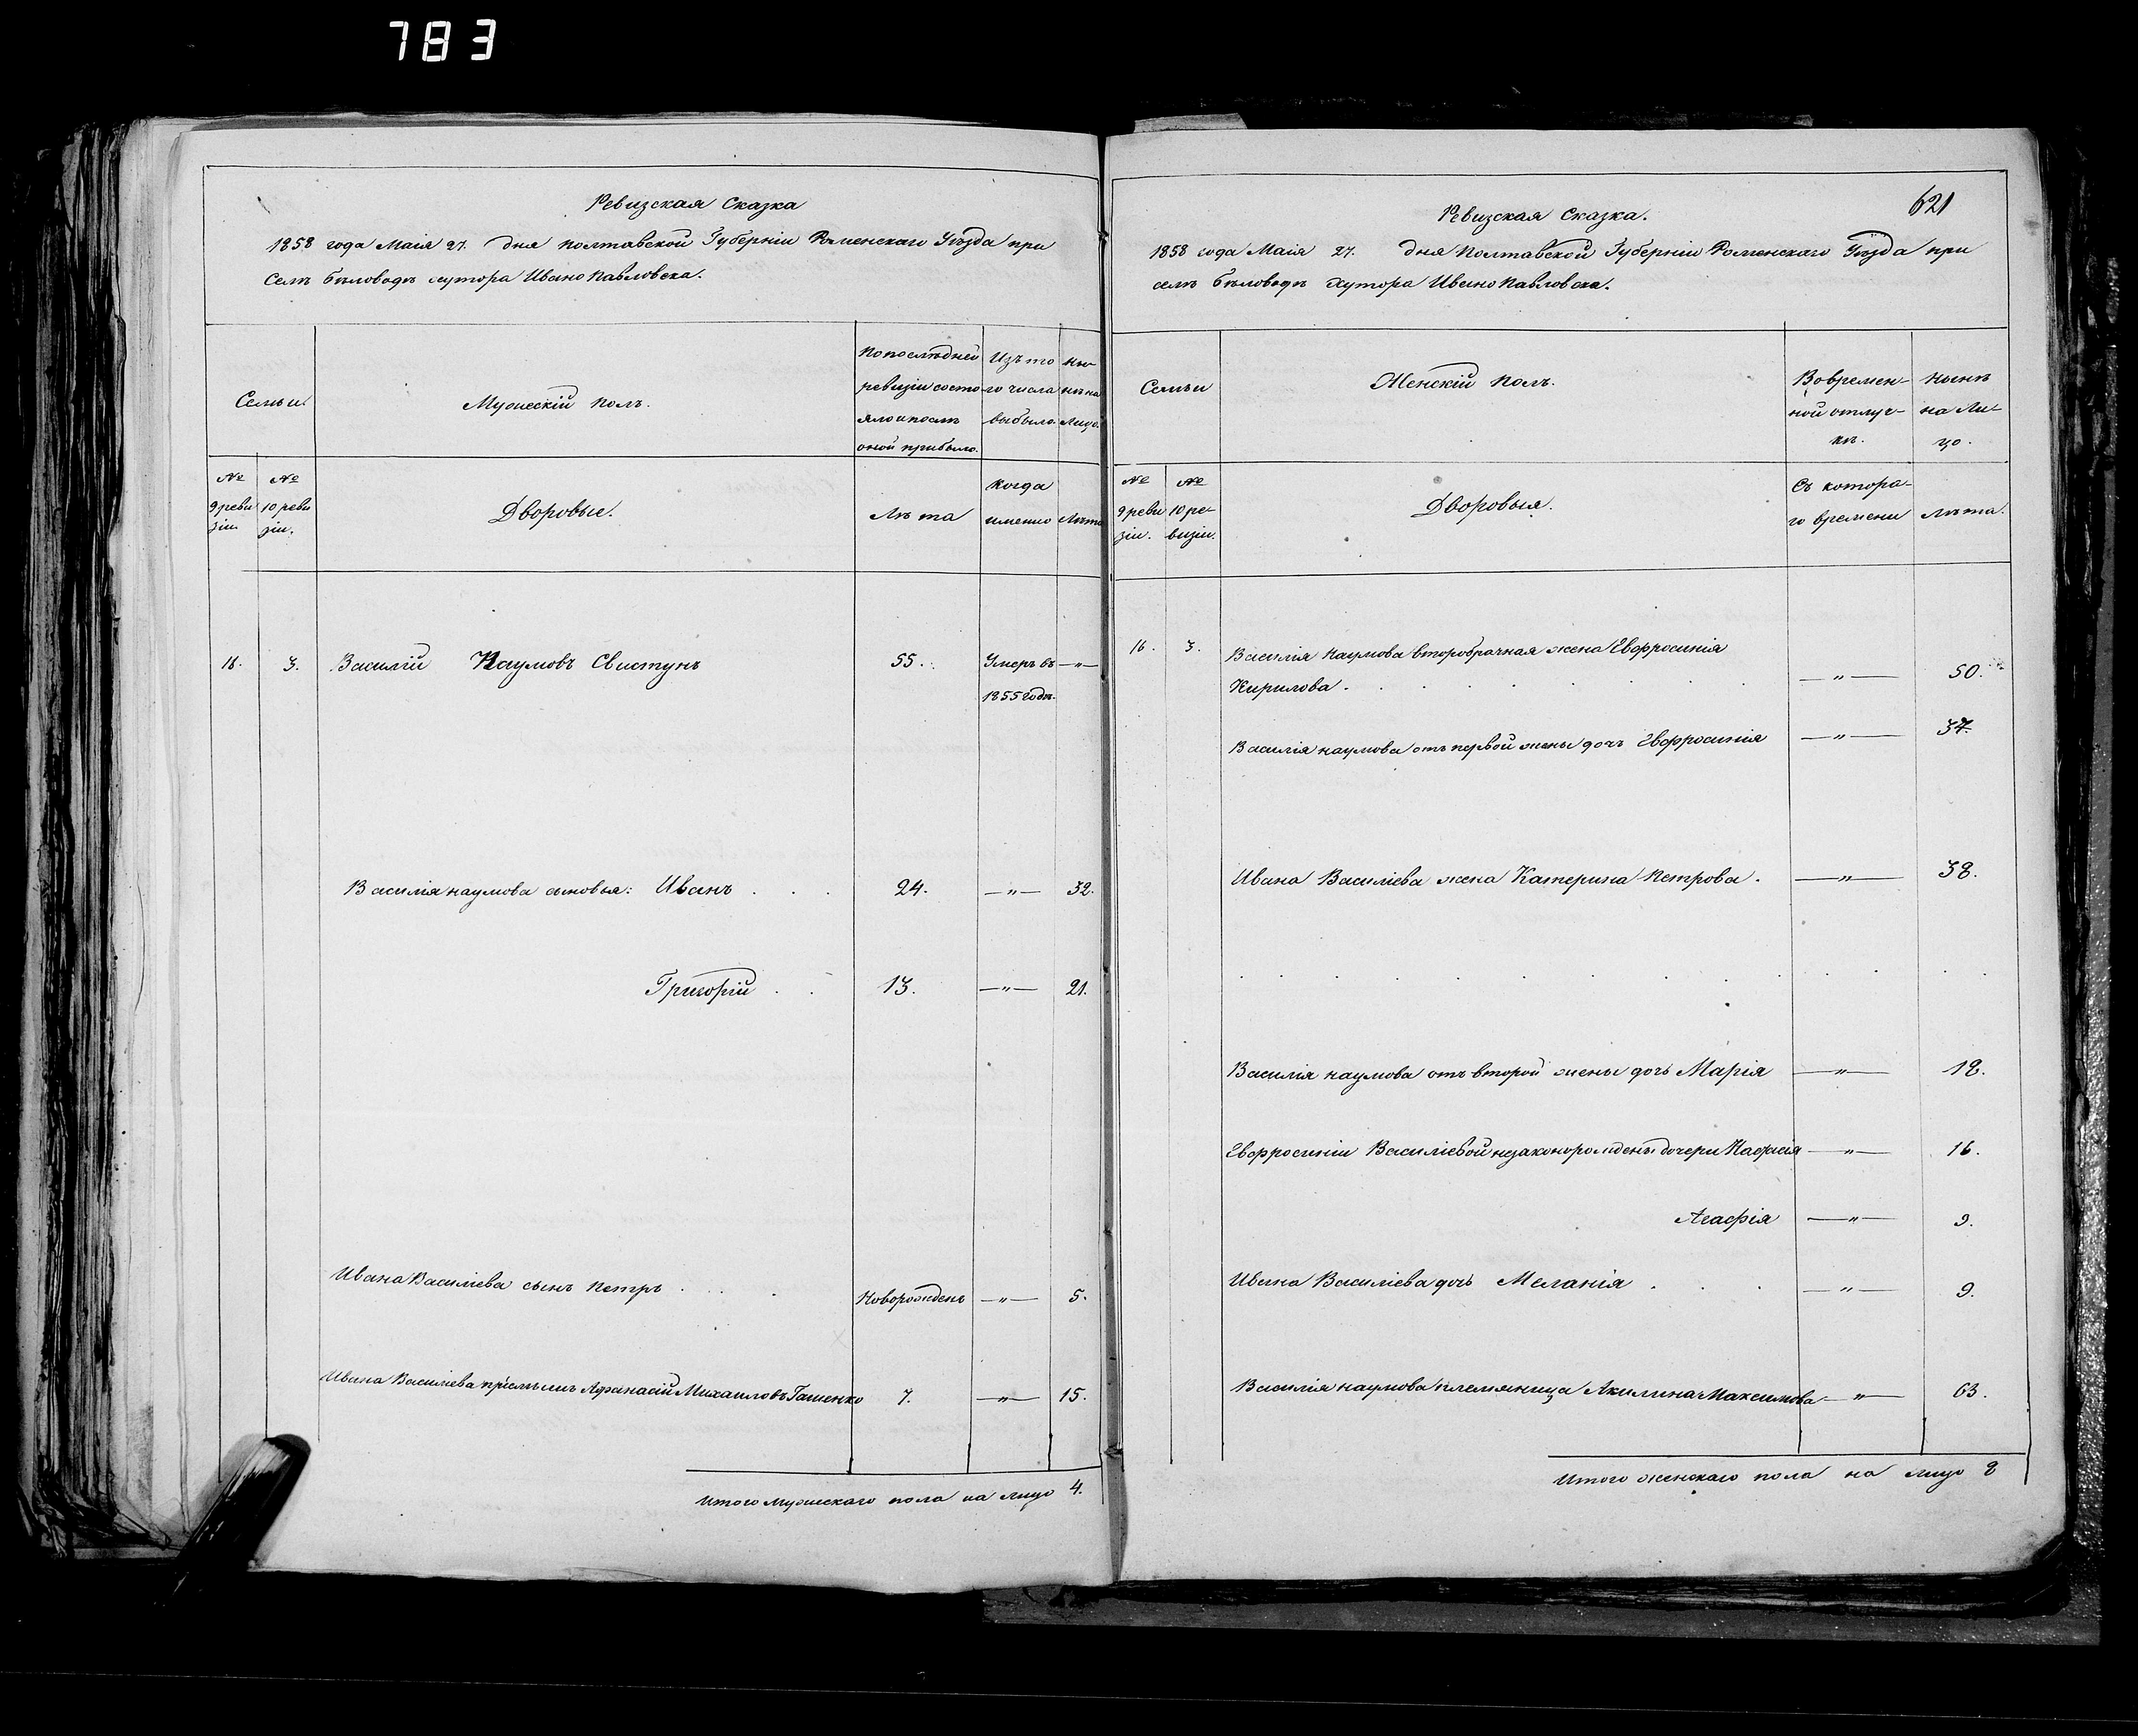 783
Ревизская Сказка
1858 года Маія 27. дня Полтавской Губерніи Роменскаго Уѣзда при
Селѣ Бѣловодѣ хутора Ивано Павловска.
Семьи.
Мужескій Полъ.
По послѣдней
ревизіи состо-
яло и послѣ
оной прибыло.
Изъ то
го числа
выбыло.
Ны-
нѣ на
Лицо.
№
9 реви
зіи
№
10 реви
зіи.
Дворовые.
Лѣта
когда
именно
Лѣта
16. 3. Василій Наумовъ Свистунъ 55. Умеръ въ —„—
1855 годѣ.
Василія Наумова сыновья: Иванъ . . . 24. —„— 32.
Григорій . . 13. —„— 21.
Ивана Василіева сынъ Петръ . . . Новорожденъ —„— 5.
Ивана Василіева пріемышъ Афанасій Михаиловъ 7. —„— 15.
Итого мужескаго пола на лицо 4.
621
Ревизская Сказка.
1858 года Маія 27. дня Полтавской Губерніи Роменскаго Уѣзда при
селѣ Бѣловодѣ Хутора Ивано Павловска.
Семьи
Женскій Полъ.
Во времен-
ной отлуч-
кѣ.
Нынѣ
на Ли-
цо.
№
9 реви
зіи.
№
10 ре-
визіи.
Дворовыя.
Съ котора-
го времени
лѣта.
16. 3. Василія Наумова второбрачная жена Евфросинія
Кирилова . . . . . . —„— 50.
Василія Наумова отъ первой жены дочь Евфросинія —„— 37.
Ивана Василіева жена Катерина Петрова . —„— 38.
Василія Наумова отъ второй жены дочь Марія —„— 18.
Евфросиніи Василіевой незаконорожденъ дочери —„— 16.
Агафія —„— 9.
Ивана Василіева дочь Меланія . . . —„— 9.
Василія Наумова племянница Акилина Максимова —„— 63.
Итого женскаго пола на лицо 8